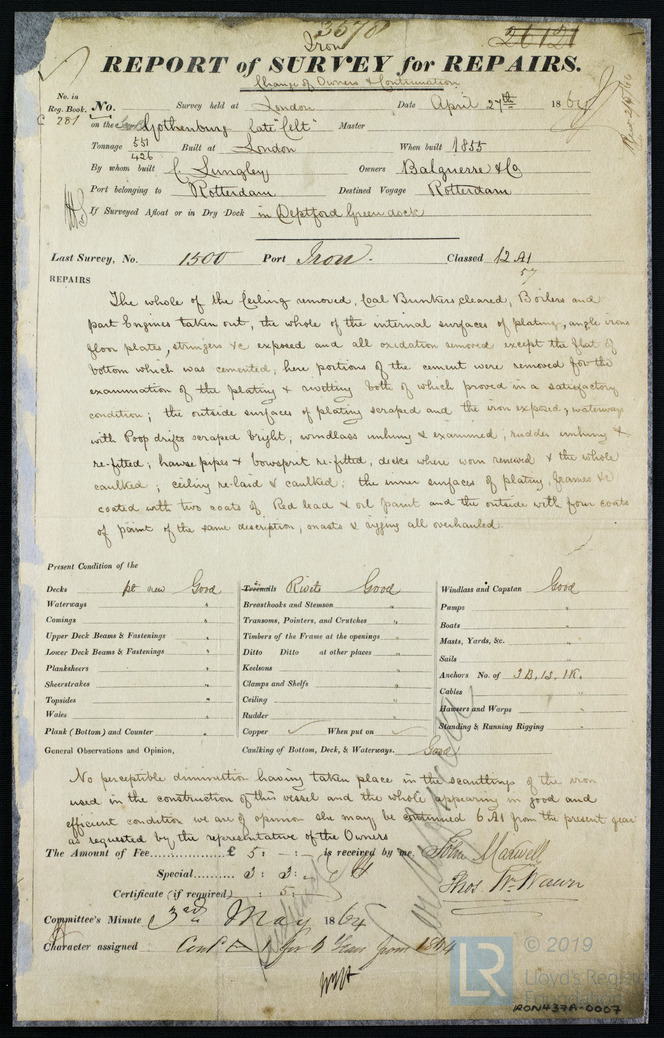 3578
26121
Iron
REPORT of SURVEY for REPAIRS.
Change of Owners & Continuation
No. in Reg. Book. No. Survey held at London Date April 27th 1864
C 281 on the Gothenburg late "Celt" Master
Tonnage 551 426 Built at London When built 1855
By whom built C. Lungley Owners Balguerie & Co
Port belonging to Rotterdam Destined Voyage Rotterdam
If Surveyed Afloat or in Dry Dock in Deptford Green dock
Last Survey, No. 1500 Port Iron. Classed 12 A1
57
REPAIRS
The whole of the Ceiling removed, Coal Bunkers cleared, Boilers and
part Engines taken out, the whole of the internal surfaces of plating, angle irons
floor plates, stringers &c exposed and all oxidation removed except the flat of
bottom which was cemented, here portions of the cement were removed for the
examination of the plating & rivetting both of which proved in a satisfactory
condition; the outside surfaces of plating scraped and the iron exposed, waterways
with Poop drifts scraped bright, windlass unhung & examined, rudder unhung &
re-fitted; hawse pipes & bowsprit re-fitted, decks where worn renewed & the whole
caulked; ceiling re-laid & caulked; the inner surfaces of plating, frames &c
coated with two coats of Red lead & oil paint and the outside with four coats
of paint of the same description, masts & rigging all overhauled.
Present Condition of the
Decks pt new Good
Waterways "
Comings "
Upper Deck Beams & Fastenings "
Lower Deck Beams & Fastenings "
Planksheers "
Sheerstrakes "
Topsides "
Wales "
Plank (Bottom) and Counter "
Treenails Rivets Good
Breasthooks and Stemson "
Transoms, Pointers, and Crutches "
Timbers of the Frame at the openings "
Ditto Ditto at other places "
Keelsons "
Clamps and Shelfs "
Ceiling "
Rudder "
Copper When put on
Windlass and Capstan Good
Pumps "
Boats "
Masts, Yards, &c. "
Sails "
Anchors No. of 3 B. 1 S. 1 K.
Cables "
Hawsers and Warps "
Standing & Running Rigging "
General Observations and Opinion, Caulking of Bottom, Deck, & Waterways. Good
No perceptible diminution having taken place in the scantlings of the iron
used in the construction of this vessel and the whole appearing in good and
efficient condition we are of opinion she may be continued 6 A1 from the present year
as requested by the representative of the Owners
The Amount of Fee £ 5 : - : - is received by me, John Maxwell
Special 3 : 3 : -
Thos Wm Wawn
Certificate (if required) : 5 : -
Committee's Minute 3rd May 1864
Character assigned Contd A for 4 Years from 1864
© 2019
LR Lloyd's Register
IRON437A-0007